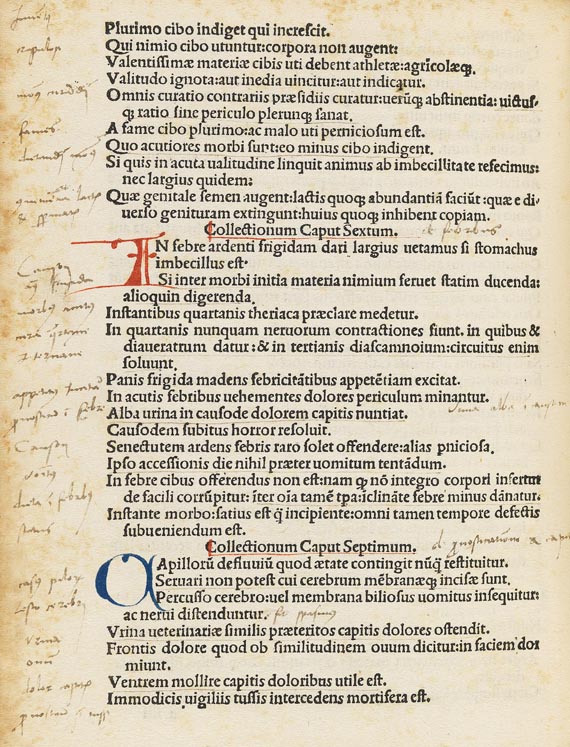 Plurimo cibo indiget qui increſcit.
Qui nimio cibo utuntur:corpora non augent:
Valentiſſimæ materiæ cibis uti debent athletæ:agricolæqꝫ.
Valitudo ignota:aut inedia uincitur:aut indicatur.
Omnis curatio contrariis præſidiis curatur:ueruqꝫ abſtinentia: uictuſ-
qꝫ ratio ſine periculo plerunqꝫ ſanat.
A fame cibo plurimo:ac malo uti perniciosum eſt.
Quo acutiores morbi ſunt:eo minus cibo indigent.
Si quis in acuta ualitudine linquit animus ab imbecillitate refecimus:
nec largius quidem:
Quæ genitale ſemen augent:lactis quoqꝫ abundantiā faciūt :quæ e di/
uerſo genituram extingunt:huius quoqꝫ inhibent copiam.
Collectionum Caput Sextum. de febribus
IN febre ardenti frigidam dari largius uetamus ſi ſtomachus
imbecillus eſt·
Si inter morbi initia materia nimium feruet ſtatim ducenda:
alioquin digerenda.
Inſtantibus quartanis theriaca præclare medetur.
In quartanis nunquam neruorum contractiones fiunt. in quibus &
diaueratrum datur:& in tertianis diaſcamnoium:circuitus enim
ſoluunt.
Panis frigida madens febricitātibus appetētiam excitat.
In acutis febribus uehementes dolores periculum minantur.
Alba urina in cauſode dolorem capitis nuntiat.
Cauſodem ſubitus horror reſoluit.
Senectutem ardens febris raro ſolet offendere:alias pnicioſa.
Ipſo acceſſionis die nihil præter uomitum tentādum.
In febre cibus offerēdus non eſt:nam qꝫ nō integro corpori inſertur
de facili corrūpitur: īter oīa tamē tpa:iclināte febre minus dānatur.
Inſtante morbo:ſatius eſt q̄ incipiente:omni tamen tempore defectis
ſubueniendum eſt.
Collectionum Caput Septimum.
CApillorū defluuiū quod ætate contingit nūq̄ reſtituitur.
Seruari non poteſt cui cerebrum mēbranæqꝫ inciſæ ſunt.
Percuſſo cerebro:uel membrana bilioſus uomitus inſequitur:
ac nerui diſtenduntur.
Vrina ueterinariæ ſimilis præteritos capitis dolores oſtendit.
Frontis dolore quod ob ſimilitudinem ouum dicitur:in faciem dor
miunt.
Ventrem mollire capitis doloribus utile eſt.
Immodicis uigiliis tuſſis intercedens mortifera eſt.